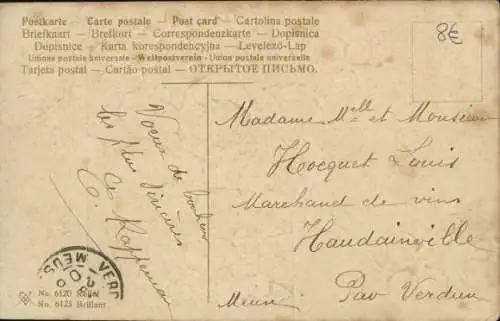 Postkarte - Carte postale - Post card - Cartolina postale
Briefkaart - Brefkort - Correspondenzkarte - Dopisnica
Dopisnice - Karta korespondencyjna - Levelező-Lap
Unione postale universale - Weltpostverein - Union postale universelle
Tarjeta postal - Cartão postal - ОТКРЫТОЕ ПИСЬМО.
8€
Voeux de bonheur
les plus sincères
Madame Mlle et Monsieur
Hocquet Louis
Marchand de vins
Haudainville
Meuse Par Verdun
VERD
MEUS
No. 6120 Relief
No. 6123 Brillant